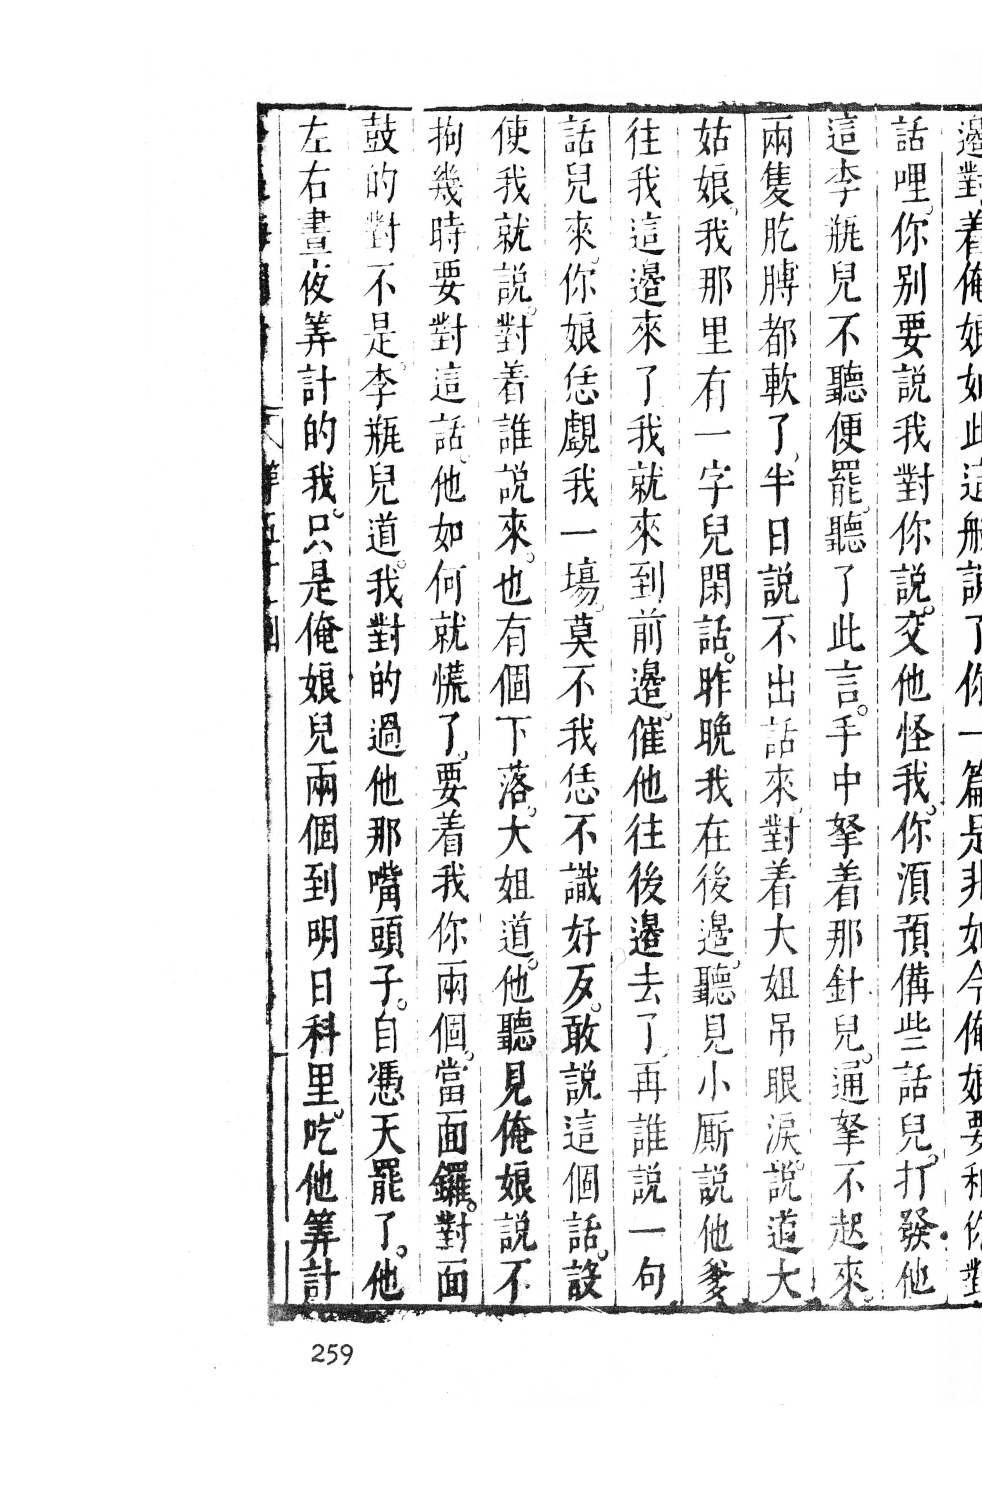 邉對着俺娘如此這般說了你一篇是非如今俺娘要和你對
話哩你別要說我對你說交他怪我你湏預備些話兒打發他
這李瓶兒不聽便罷聽了此言手中拏着那針兒通拏不起來
兩隻肐膊都軟了半日說不出話來對着大姐吊眼淚說道大
姑娘我那里有一字兒閑話昨晚我在後邉聽見小厮說他爹
往我這邉來了我就來到前邉催他往後邉去了再誰說一句
話兒來你娘恁覷我一塲莫不我恁不識好反敢說這個話設
使我就說對着誰說來也有個下落大姐道他聽見俺娘說不
拘幾時要對這話他如何就慌了要着我你兩個當面鑼對面
鼓的對不是李瓶兒道我對的過他那嘴頭子自憑天罷了他
左右晝夜筭計的我只是俺娘兒兩個到明日科里吃他筭計
259